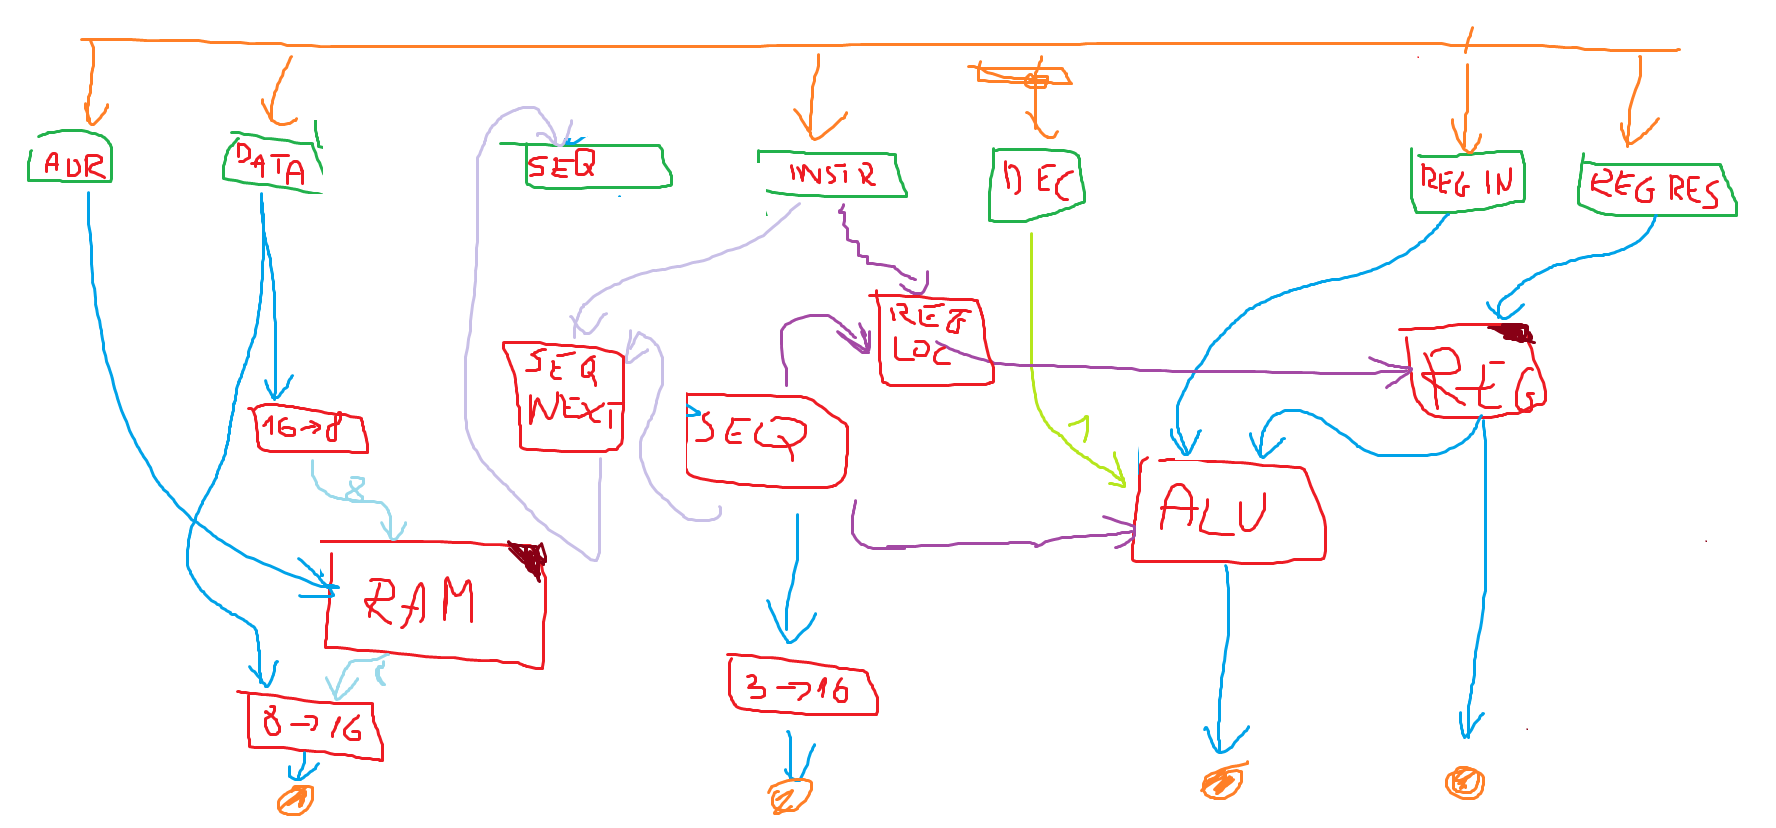 ADR
DATA
SEQ
INSTR
DEC
REG IN
REG RES
REG
LOC
SEQ
NEXT
REG
16→8
SEQ
1
8
ALU
RAM
8
3→16
8→16